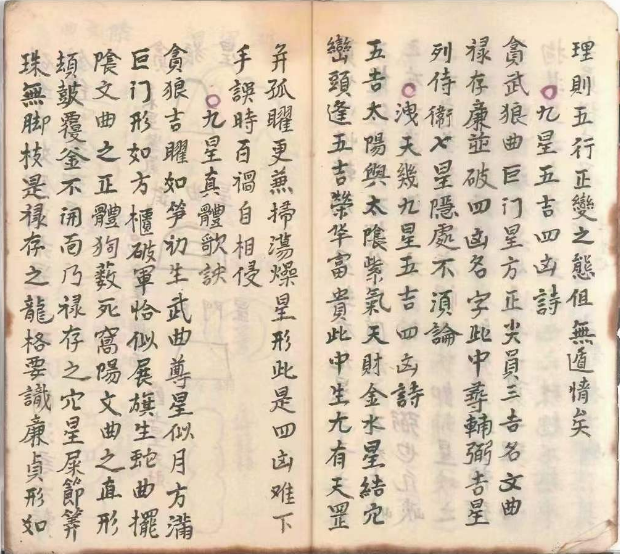 理則五行正變之態俱無遁情矣
○九星五吉四凶詩
貪武狼曲巨门星方正尖員三吉名文曲
祿存廉並破四凶名字此中尋輔弼吉星
列侍衛七星隱處不須論
○洩天幾九星五吉四凶詩
五吉太陽與太陰紫氣天財金水星結穴
巒頭逢五吉榮华富貴此中生尤有天罡
并孤曜更兼掃蕩燥星形此是四凶难下
手誤時百禍自相侵
○九星真體歌訣
貪狼吉曜如笋初生武曲尊星似月方滿
巨门形如方櫃破軍恰似展旗生蛇曲擺
陰文曲之正體狗薮死窩陽文曲之直形
皷覆釜不開面乃祿存之穴星屎節笄
珠無脚枝是祿存之龍格要識廉貞形如